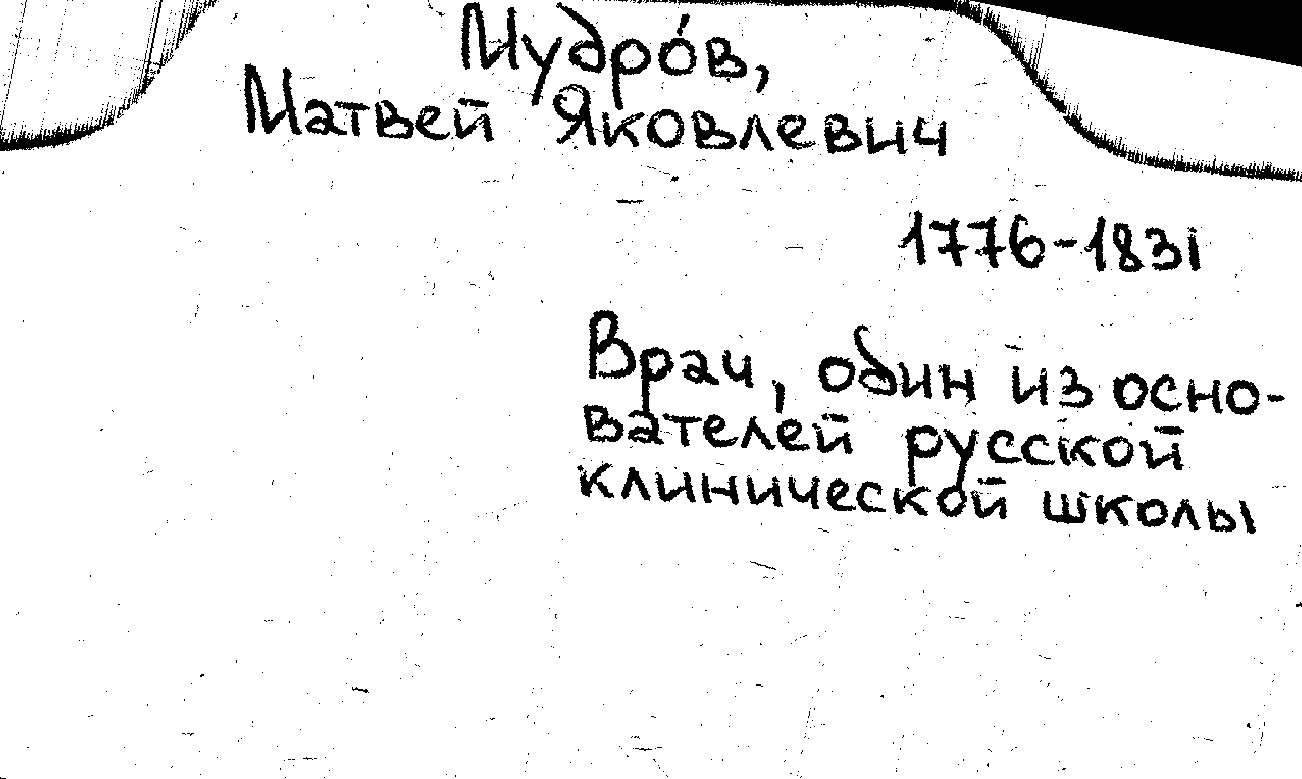 Мудро́в,
Матвей Яковлевич
1776-1831
Врач, один из осно-
вателей русской
клинической школы